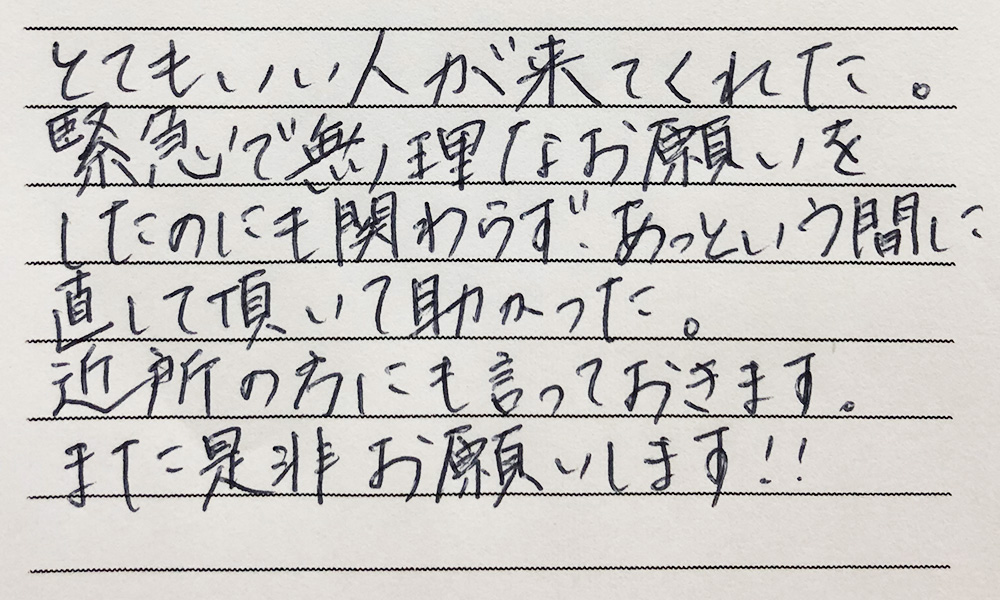 とてもいい人が来てくれた。
緊急で無理なお願いを
したのにも関わらず、あっという間に
直して頂いて助かった。
近所の方にも言っておきます。
また是非お願いします!!